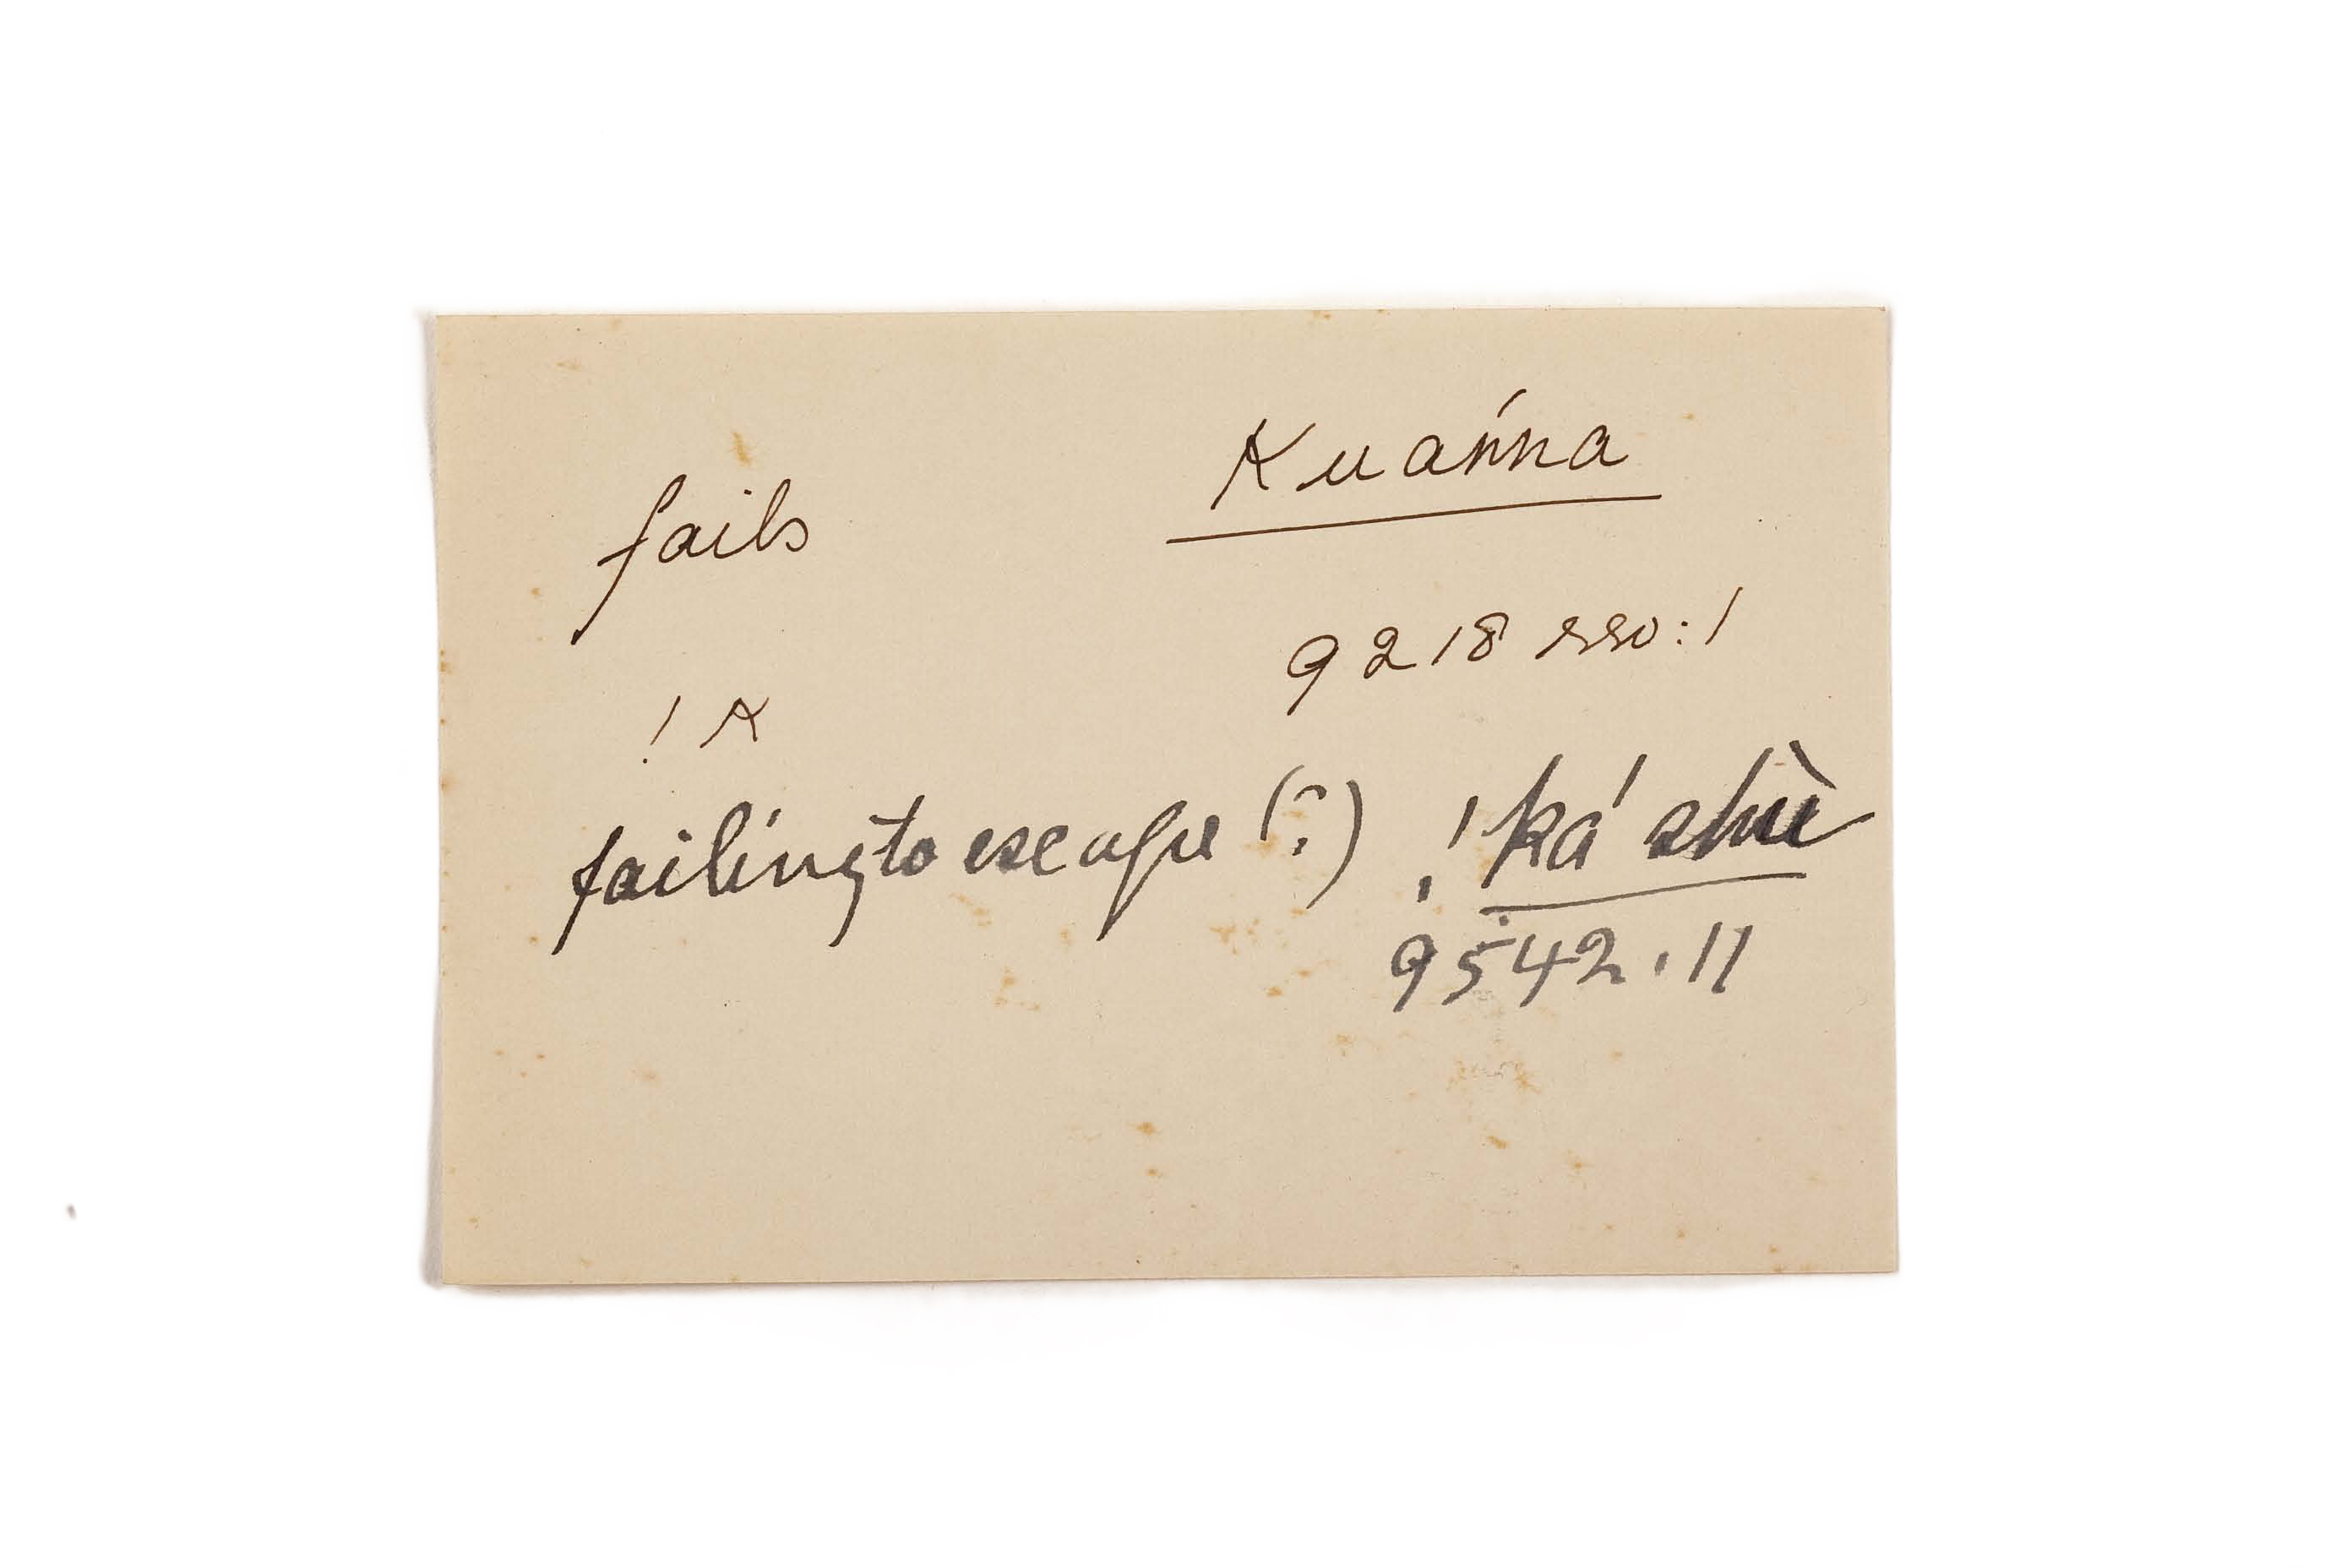 fails Kuánna
9218 rev:1
! K
failing to escape (?) !ká shù
9542.11